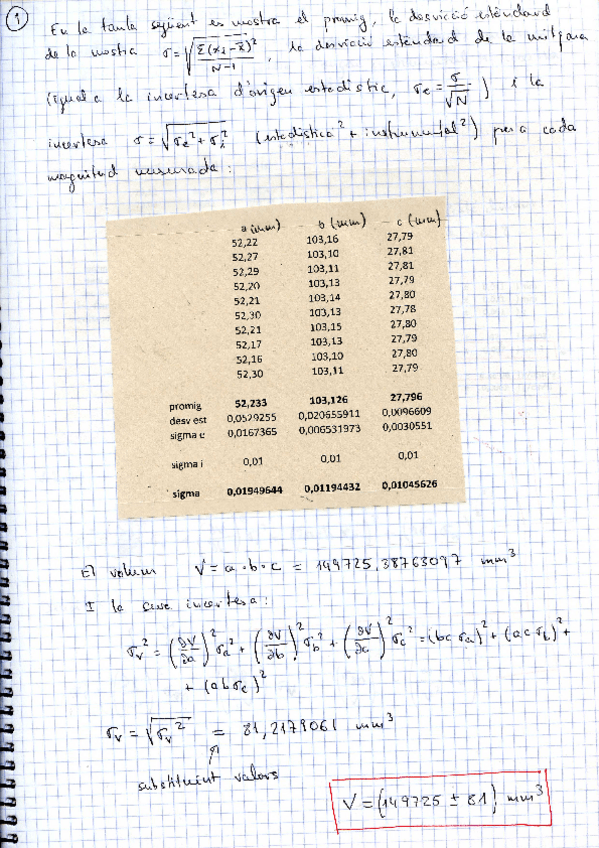 1 En la taula següent es mostra el promig, la desvició estàndard
de la mostra σ=√(Σ(xi-x̄)²/N-1), la desvició estàndard de la mitjana
(igual a la incertesa d'origen estadístic, σe=σ/√N) i la
incertesa σ=√(σe²+σi²) (estadística²+instrumental²) per a cada
magnitud mesurada:
a (mm) b (mm) c (mm)
52,22 103,16 27,79
52,27 103,10 27,81
52,29 103,11 27,81
52,20 103,13 27,79
52,21 103,14 27,80
52,30 103,13 27,78
52,21 103,15 27,80
52,17 103,13 27,79
52,16 103,10 27,80
52,30 103,11 27,79
promig 52,233 103,126 27,796
desv est 0,0529255 0,020655911 0,0096609
sigma e 0,0167365 0,006531973 0,0030551
sigma i 0,01 0,01 0,01
sigma 0,01949644 0,01194432 0,01045626
El volum V=a·b·c = 149725,38763097 mm³
I la seva incertesa:
σv²=(∂V/∂a)²σa²+(∂V/∂b)²σb²+(∂V/∂c)²σc²=(bcσa)²+(acσb)²+
+(abσc)²
σv=√σv² = 81,2179061 mm³
substituint valors
V=(149725 ± 81) mm³